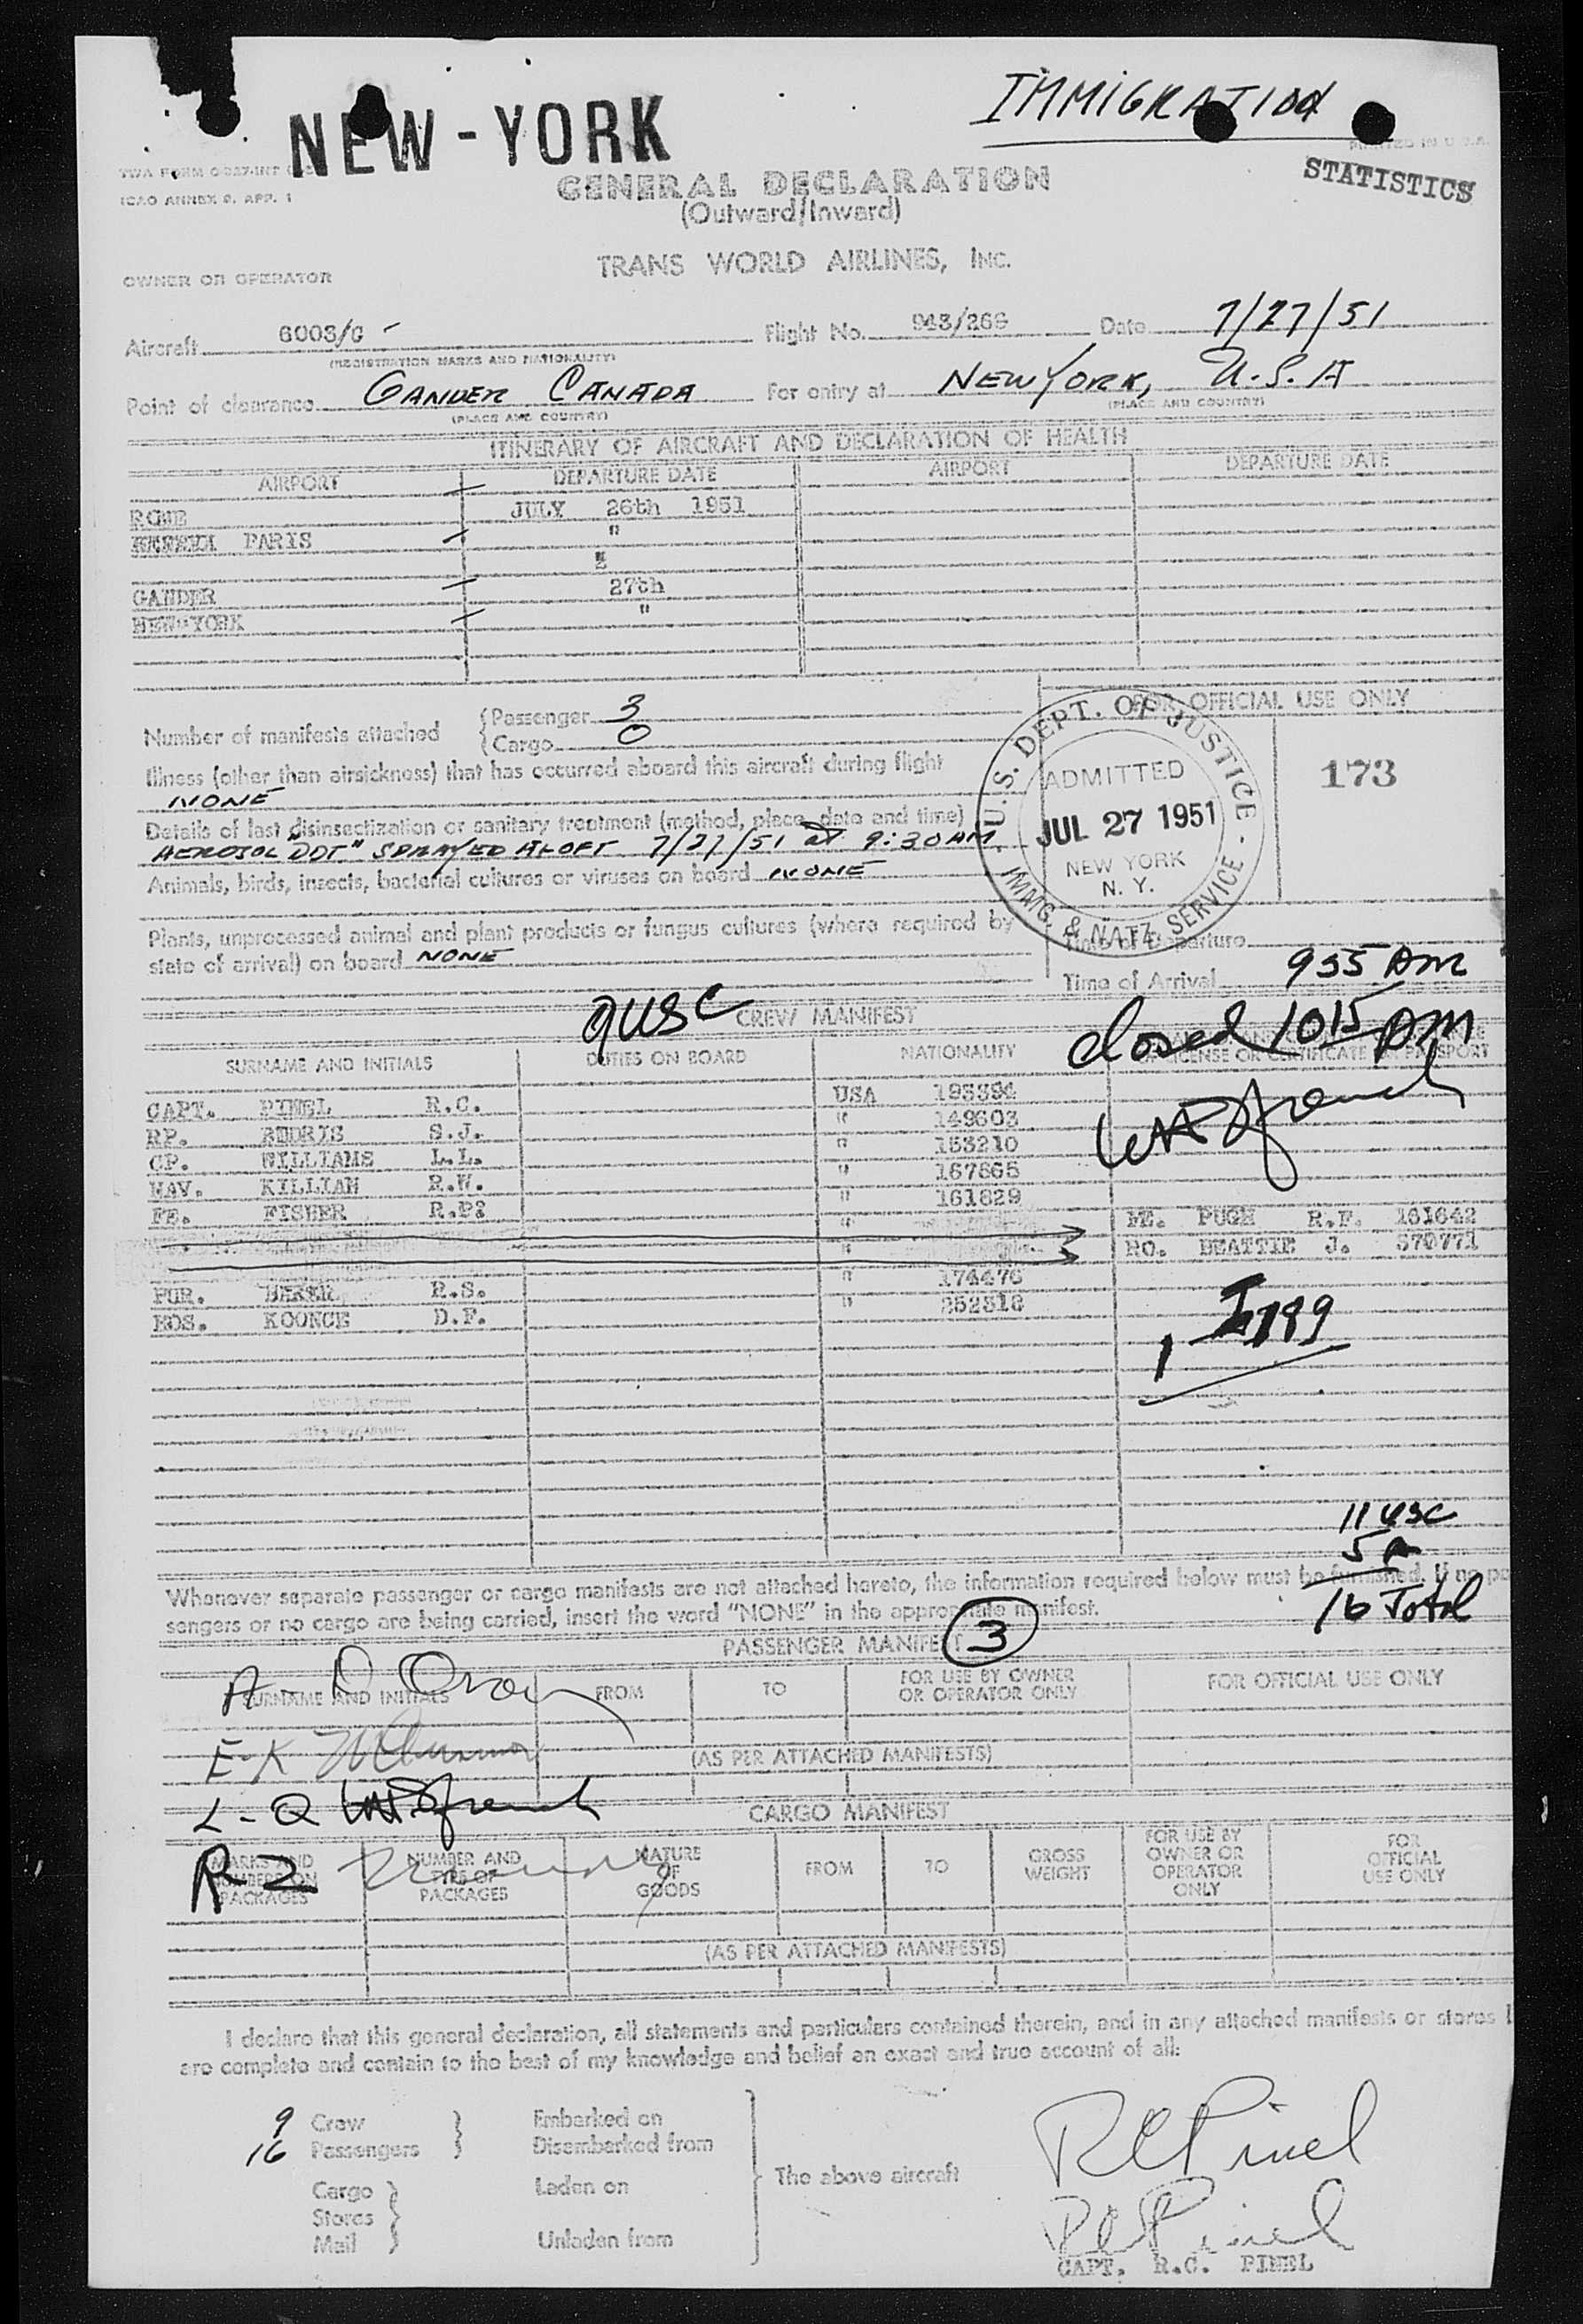 NEW-YORK
IMMIGRATION
PRINTED IN U.S.A.
ICAO ANNEX 9, APP. 1
STATISTICS
GENERAL DECLARATION
(Outward/Inward)
OWNER OR OPERATOR
TRANS WORLD AIRLINES, INC.
Aircraft 6003/G Flight No. 943/266 Date 7/27/51
(REGISTRATION MARKS AND NATIONALITY)
Point of clearance GANDER CANADA For entry at NEW YORK, U.S.A
(PLACE AND COUNTRY) (PLACE AND COUNTRY)
ITINERARY OF AIRCRAFT AND DECLARATION OF HEALTH
AIRPORT DEPARTURE DATE AIRPORT DEPARTURE DATE
ROME JULY 26th 1951
PARIS "
GANDER 27th
NEW-YORK "
FOR OFFICIAL USE ONLY
Number of manifests attached { Passenger 3
{ Cargo 0
173
U.S. DEPT. OF JUSTICE - IMMG. & NATZ. SERVICE -
ADMITTED
JUL 27 1951
NEW YORK
N. Y.
Illness (other than airsickness) that has occurred aboard this aircraft during flight
NONE
Details of last disinsectization or sanitary treatment (method, place, date and time)
AEROSOL DDT" SPRAYED ALOFT 7/27/51 at 9:30 AM
Animals, birds, insects, bacterial cultures or viruses on board NONE
Plants, unprocessed animal and plant products or fungus cultures (where required by
state of arrival) on board NONE
Time of Departure
Time of Arrival 935 AM
9USC
CREW MANIFEST
Closed 1015 AM
SURNAME AND INITIALS DUTIES ON BOARD NATIONALITY LICENSE OR CERTIFICATE OR PASSPORT
CAPT. PINEL R.C. USA 193394
RP. BEDRIS S.J. " 149603
CP. WILLIAMS L.L. " 153210
NAV. KILLIAN R.W. " 167865
FE. FISHER R.P. " 161829
" FE. PUGH R.F. 161642
" RO. BEATTIE J. 570771
PUR. BAKER R.S. " 174476
HOS. KOONCE D.F. " 252318
1 I 789
11 USC
5 A
16 Total
Whenever separate passenger or cargo manifests are not attached hereto, the information required below must be furnished. If no pas
sengers or no cargo are being carried, insert the word "NONE" in the appropriate manifest.
3
PASSENGER MANIFEST
A - D
SURNAME AND INITIALS FROM TO FOR USE BY OWNER OR OPERATOR ONLY FOR OFFICIAL USE ONLY
E-K
(AS PER ATTACHED MANIFESTS)
L-Q
CARGO MANIFEST
R-Z
MARKS AND NUMBERS ON PACKAGES NUMBER AND TYPE OF PACKAGES NATURE OF GOODS FROM TO GROSS WEIGHT FOR USE BY OWNER OR OPERATOR ONLY FOR OFFICIAL USE ONLY
(AS PER ATTACHED MANIFESTS)
I declare that this general declaration, all statements and particulars contained therein, and in any attached manifests or stores l
are complete and contain to the best of my knowledge and belief an exact and true account of all:
9 Crew } Embarked on
16 Passengers } Disembarked from
Cargo } Laden on
Stores }
Mail } Unladen from
The above aircraft
R C Pinel
R C Pinel
CAPT. R.C. PINEL